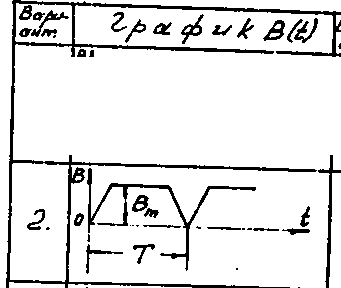 Вари-
ант.
График B(t)
B
Bm
2.
0
t
T